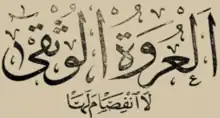 العروة الوثقى
لا انفصام لها